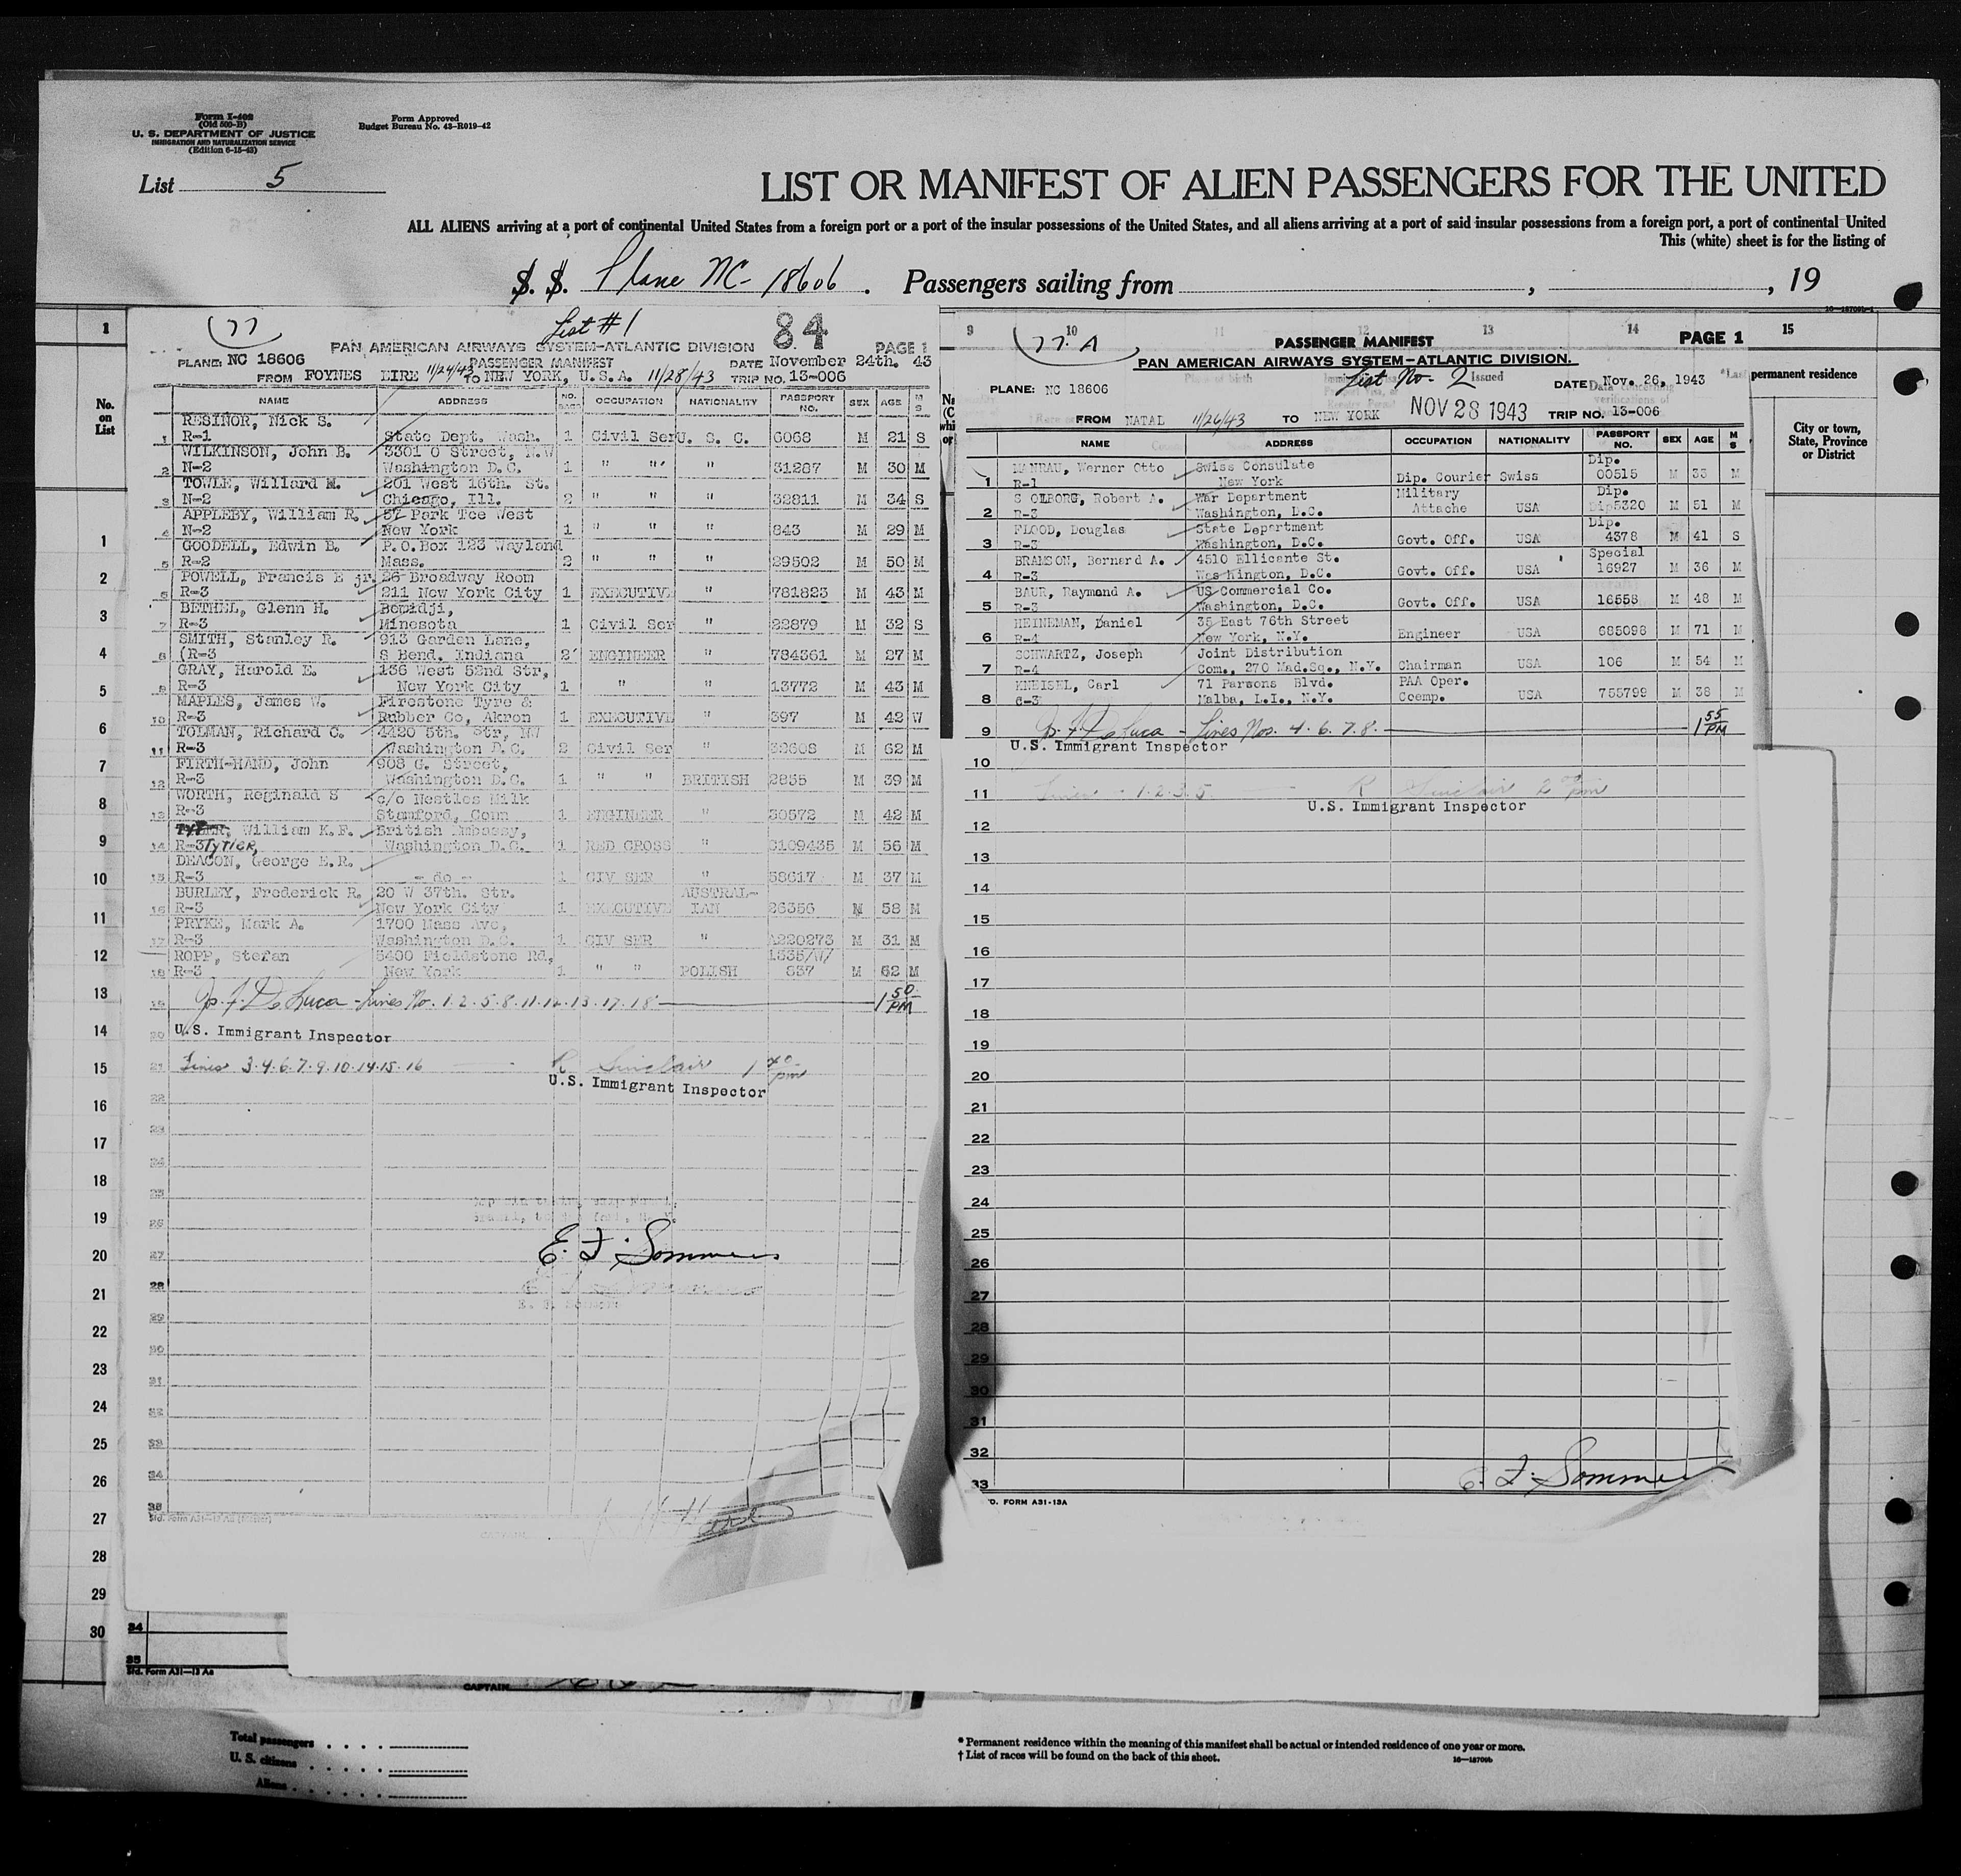 Form I-402
(Old 500-B)
U. S. DEPARTMENT OF JUSTICE
IMMIGRATION AND NATURALIZATION SERVICE
(Edition 6-15-43)
Form Approved
Budget Bureau No. 43-R019-42
List 5
LIST OR MANIFEST OF ALIEN PASSENGERS FOR THE UNITED
ALL ALIENS arriving at a port of continental United States from a foreign port or a port of the insular possessions of the United States, and all aliens arriving at a port of said insular possessions from a foreign port, a port of continental United
This (white) sheet is for the listing of
S. S. Plane NC-18606. Passengers sailing from , , 19
16—18709b-1
1
No.
on
List
1
2
3
4
5
6
7
8
9
10
11
12
13
14
15
16
17
18
19
20
21
22
23
24
25
26
27
28
29
30
(77)
List #1
84
PAN AMERICAN AIRWAYS SYSTEM-ATLANTIC DIVISION PAGE 1
PLANE: NC 18606 PASSENGER MANIFEST DATE November 24th. 43
FROM FOYNES EIRE 11/24/43 TO NEW YORK, U.S.A. 11/28/43 TRIP NO. 13-006
NAME ADDRESS NO. BAGS OCCUPATION NATIONALITY PASSPORT NO. SEX AGE M S
RESINOR, Nick S.
1 R-1 State Dept. Wash. 1 Civil Ser U. S. C. 6068 M 21 S
WILKINSON, John B. 3301 O Street, N.W
2 N-2 Washington D.C. 1 " " " 31287 M 30 M
TOWLE, Willard M. 201 West 16th. St.
3 N-2 Chicago, Ill. 2 " " " 32811 M 34 S
APPLEBY, William R. 57 Park Tce West
4 N-2 New York 1 " " " 843 M 29 M
GOODELL, Edwin B. P.O.Box 123 Wayland
5 R-2 Mass. 2 " " " 29502 M 50 M
POWELL, Francis E jr. 26 Broadway Room
6 R-3 211 New York City 1 EXECUTIVE " 781823 M 43 M
BETHEL, Glenn H. Bepidji,
7 R-3 Minesota 1 Civil Ser " 22879 M 32 S
SMITH, Stanley R. 913 Garden Lane,
8 (R-3 S Bend. Indiana 2 ENGINEER " 784361 M 27 M
GRAY, Harold E. 156 West 52nd Str,
9 R-3 New York City 1 " " 13772 M 43 M
MAPLES, James W. Firestone Tyre &
10 R-3 Rubber Co, Akron 1 EXECUTIVE " 397 M 42 W
TOLMAN, Richard C. 4420 5th. Str, NW
11 R-3 Washington D.C. 2 Civil Ser " 32608 M 62 M
FIRTH-HAND, John 908 G. Street,
12 R-3 Washington D.C. 1 " " BRITISH 2855 M 39 M
WORTH, Reginald S c/o Nestles Milk
13 R-3 Stamford, Conn 1 ENGINEER " 30572 M 42 M
William K.F. British Embassy,
14 R-3 Washington D.C. 1 RED CROSS " C109435 M 56 M
DEACON, George E.R.
15 R-3 - do - 1 CIV SER " 58617 M 37 M
BURLEY, Frederick R. 20 W 37th. Str. AUSTRAL-
16 R-3 New York City 1 EXECUTIVE IAN 26356 M 58 M
PRYKE, Mark A. 1700 Mass Ave,
17 R-3 Washington D.C. 1 CIV SER " A220273 M 31 M
ROPP, Stefan 5400 Fieldstone Rd, 1535/W/
18 R-3 New York 1 " " POLISH 637 M 62 M
19 De Luca - Lines No. 1.2.5.8.11.12.13.17.18 1 50 PM
20 U.S. Immigrant Inspector
21 Lines 3.4.6.7.9.10.14.15.16 R Sinclair 1 40 pm
U.S. Immigrant Inspector
22
23
24
25
26
27 E. F. Sommers
28
29
30
31
32
33
34
35
CAPTAIN
34
35
Std. Form A31—13 Aa
CAPTAIN
9 10 11 12 13 14 15
(77.A)
PASSENGER MANIFEST PAGE 1
PAN AMERICAN AIRWAYS SYSTEM—ATLANTIC DIVISION.
List No. 2 Issued
PLANE: NC 18606 DATE Nov. 26, 1943
FROM NATAL 11/26/43 TO NEW YORK NOV 28 1943 TRIP NO. 13-006
NAME ADDRESS OCCUPATION NATIONALITY PASSPORT NO. SEX AGE M S
Werner Otto Swiss Consulate Dip.
1 R-1 New York Dip. Courier Swiss 00515 M 33 M
SOLBORG, Robert A. War Department Military Dip.
2 R-3 Washington, D.C. Attache USA 5320 M 51 M
FLOOD, Douglas State Department Dip.
3 R-3 Washington, D.C. Govt. Off. USA 4378 M 41 S
BRAMSON, Bernard A. 4510 Ellicante St. Special
4 R-3 Washington, D.C. Govt. Off. USA 16927 M 36 M
BAUR, Raymond A. US Commercial Co.
5 R-3 Washington, D.C. Govt. Off. USA 16558 M 48 M
HEINEMAN, Daniel 35 East 76th Street
6 R-4 New York, N.Y. Engineer USA 685098 M 71 M
SCHWARTZ, Joseph Joint Distribution
7 R-4 Com., 270 Mad.Sq., N.Y. Chairman USA 106 M 54 M
KNEISEL, Carl 71 Parsons Blvd. PAA Oper.
8 C-3 Malba, L.I., N.Y. Ccemp. USA 755799 M 38 M
9 De Luca - Lines Nos. 4.6.7.8. 1 55 PM
U.S. Immigrant Inspector
10
11 Lines - 1.2.3.5. R Sinclair 2 00 pm
U.S. Immigrant Inspector
12
13
14
15
16
17
18
19
20
21
22
23
24
25
26
27
28
29
30
31
32
33 E. F. Sommers
O. FORM A31-13A
permanent residence
City or town,
State, Province
or District
Total passengers . . . .
U. S. citizens . . . . .
Aliens . . . . . .
* Permanent residence within the meaning of this manifest shall be actual or intended residence of one year or more.
† List of races will be found on the back of this sheet.
16—18709b